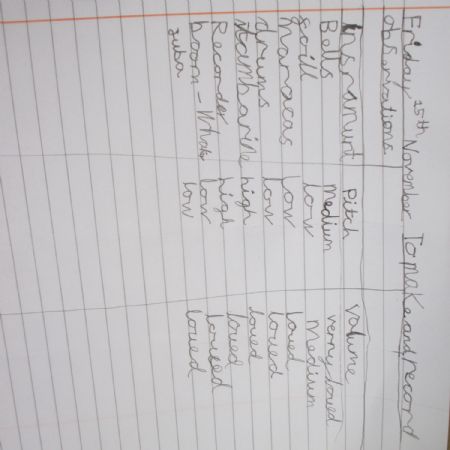 Friday 25th November To make and record
observations.
Insramunt Pitch Volume
Bells medium verny loued
low Medium
maracas low loued
drums low loued
stambarine high loued
Recorder high loued
boom-whaker low loused
zuba low loued